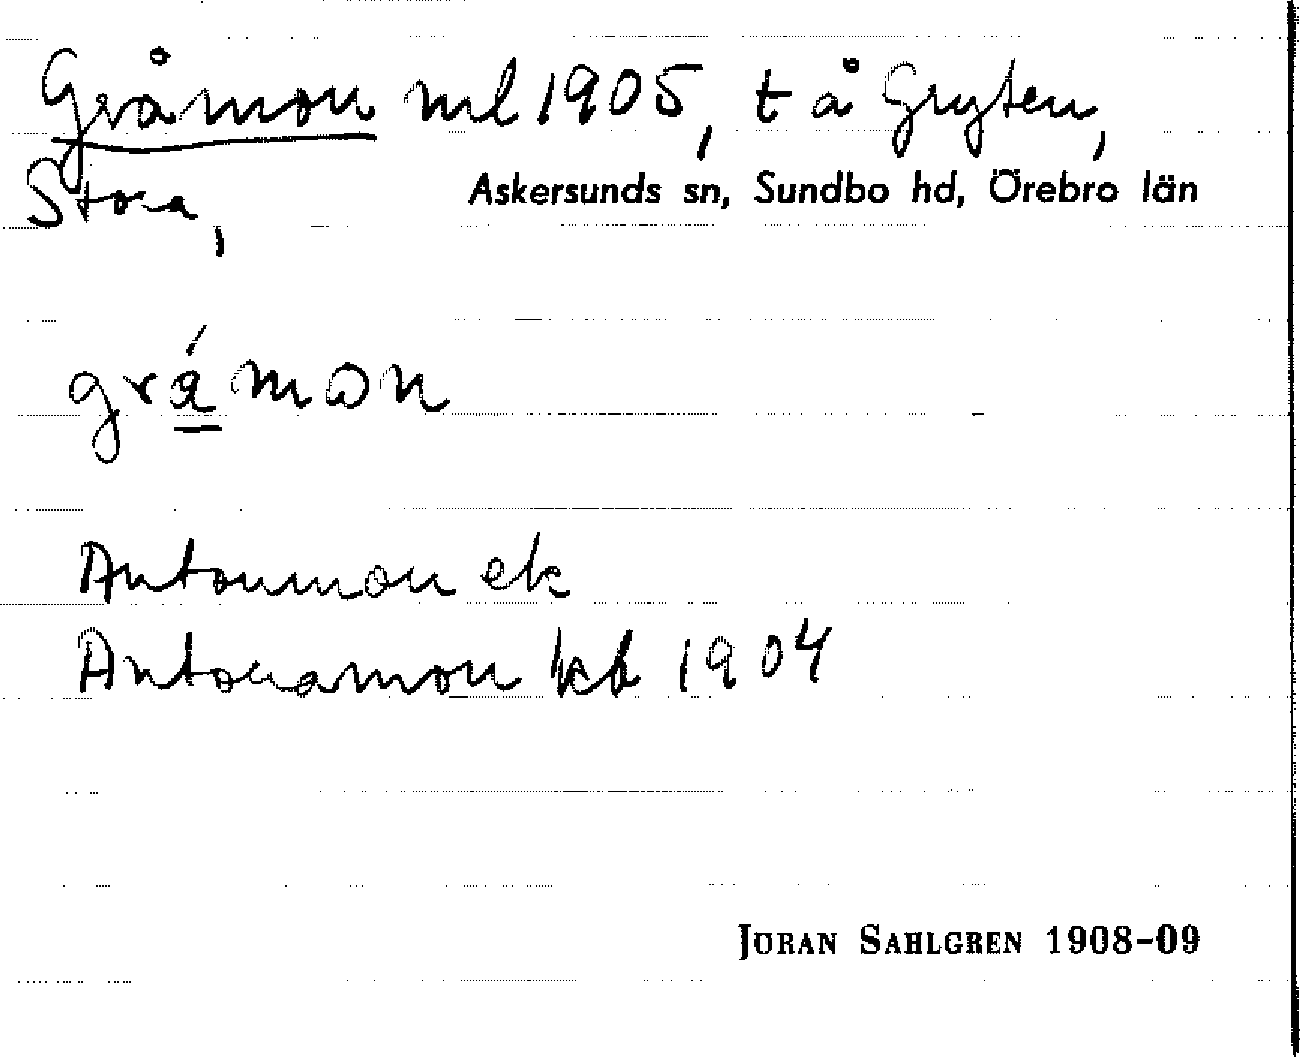 Gråmon ml 1905, t å Gryten,
Stora, Askersunds sn, Sundbo hd, Örebro län
grá̲mɷn
Antonmon ek
Antonamon kb 1904
JÖRAN SAHLGREN 1908-09